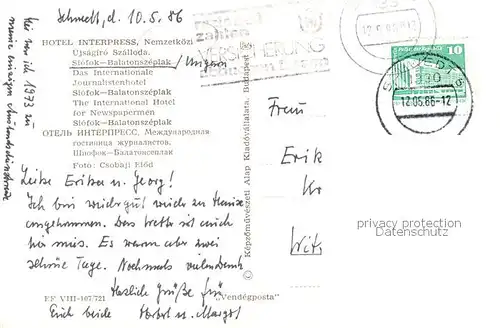 Schwedt, d. 10.5.86
HOTEL INTERPRESS, Nemzetközi
Újságíró Szálloda.
Siófok-Balatonszéplak / Ungarn
Das Internationale
Journalistenhotel
Siófok-Balatonszéplak
The International Hotel
for Newspapermen
Siófok-Balatonszéplak
ОТЕЛЬ ИНТЕРПРЕСС, Международная
гостиница журналистов.
Шиофок-Балатонсеплак
Foto: Csobaji Előd
Liebe Erika u. Georg!
Ich bin wieder gut wieder zu Hause
angekommen. Das Wetter ist auch
hier mies. Es waren aber zwei
schöne Tage. Nochmals vielen Dank
Herzliche Grüße für
Euch beide
u. Margot
EF VIII-107/721
„Vendégposta”
hier war ich 1973 zu
meiner einzigen
© Képzőművészeti Alap Kiadóvállalata, Budapest
zahlen
VERSICHERUNG
12.05.86-12
10
SCHWEDT
1330
12.05.86-12
Frau
Erik
Kr
Witt
privacy protection
Datenschutz